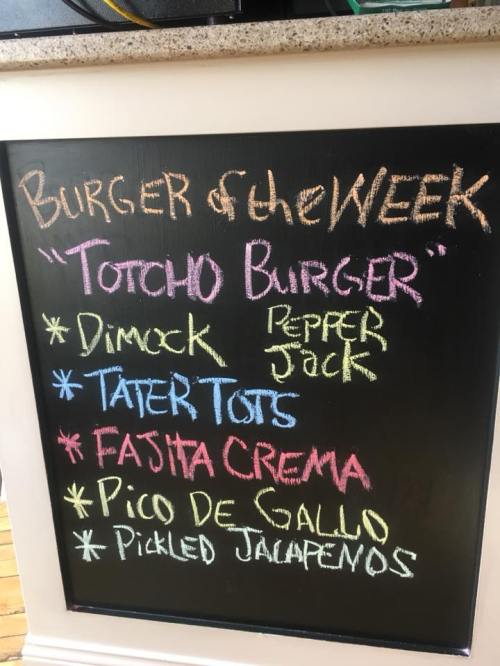 BURGER of the WEEK
"TOTCHO BURGER"
* DIMOCK PEPPER JACK
* TATER TOTS
* FAJITA CREMA
* PICO DE GALLO
* PICKLED JALAPENOS